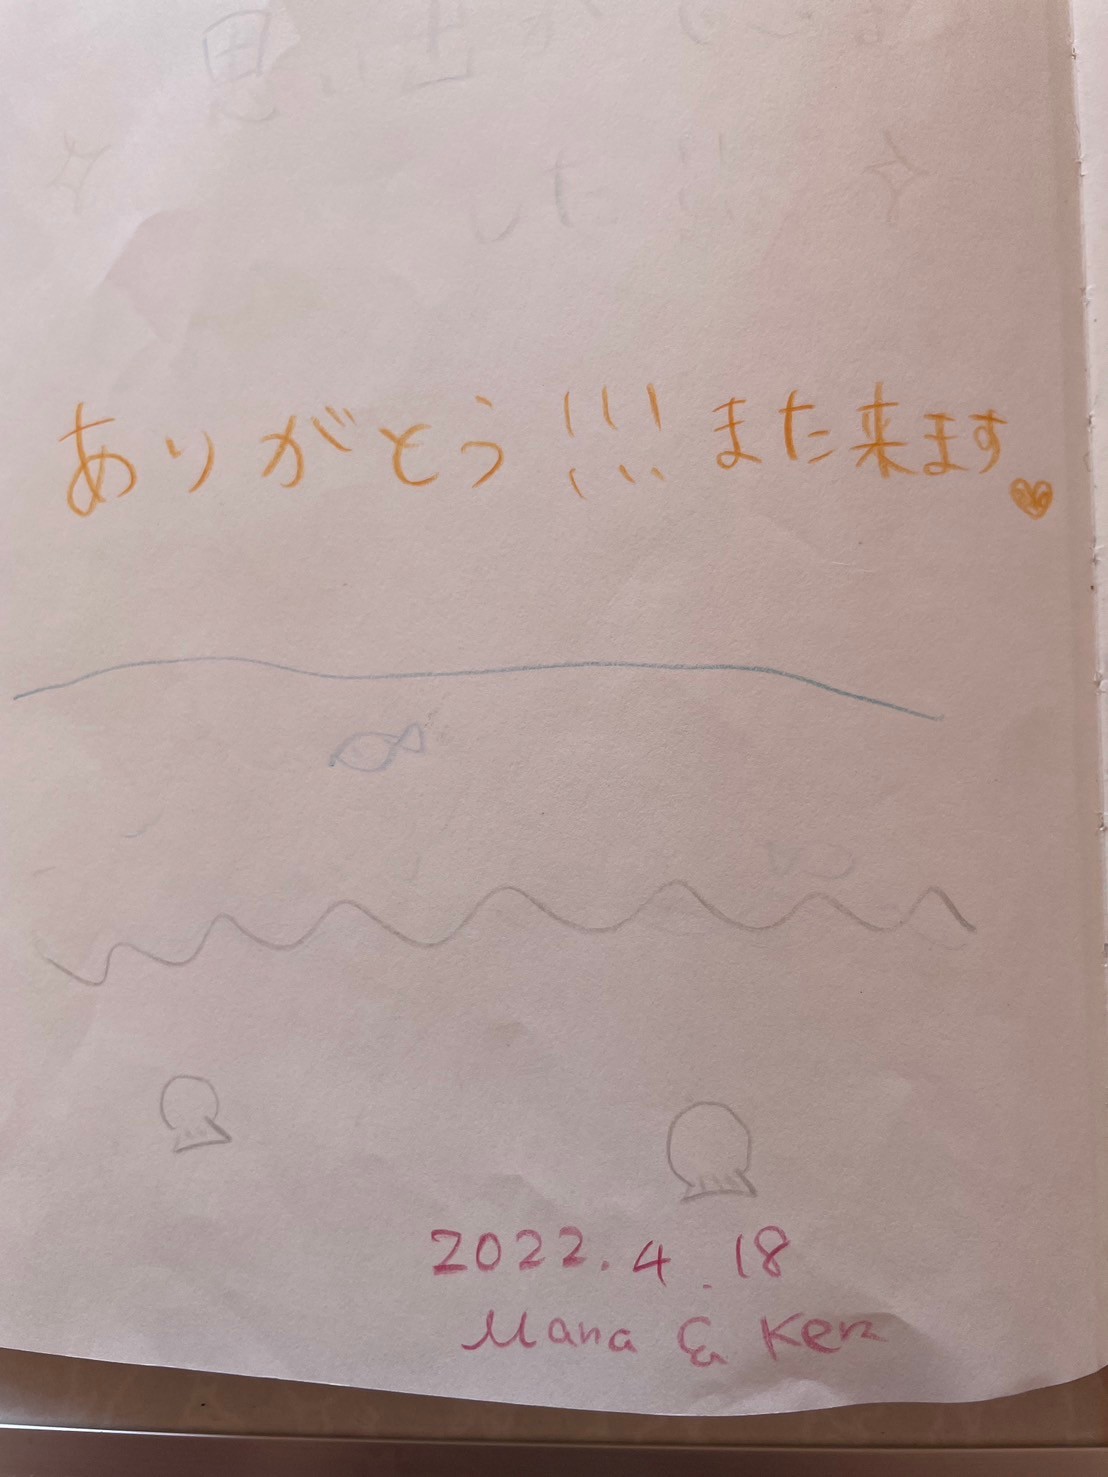 ありがとう!!!また来ます
2022.4.18
Mana & Ken